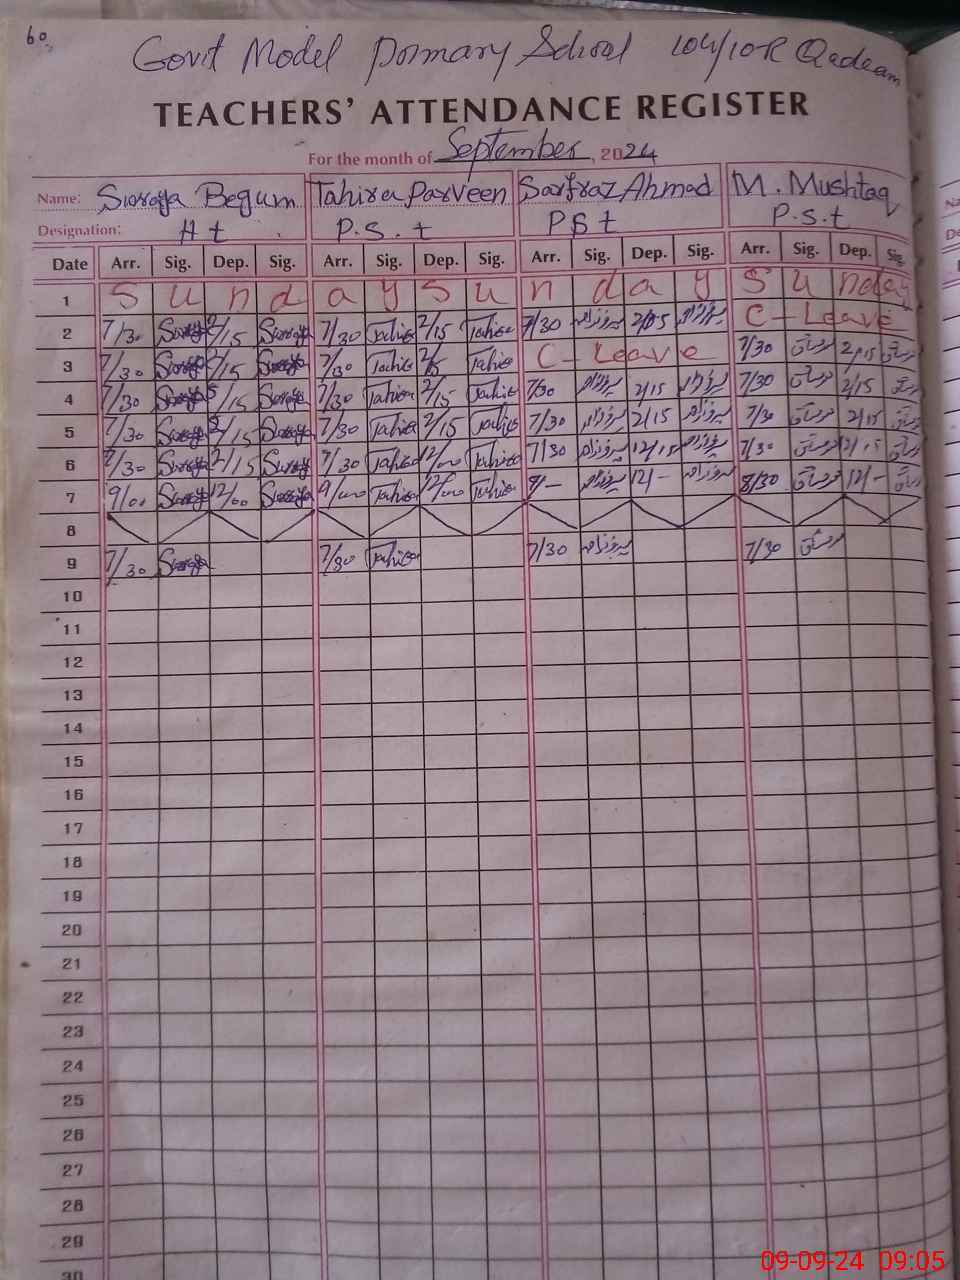 60
Govt Model Primary School 104/10-R Qadeam
TEACHERS' ATTENDANCE REGISTER
For the month of September, 2024
Name: Suraya Begum Tahira Parveen Sarfraz Ahmad M. Mushtaq
Designation: Ht P.S.t PSt P.S.t
Date Arr. Sig. Dep. Sig. Arr. Sig. Dep. Sig. Arr. Sig. Dep. Sig. Arr. Sig. Dep. Sig.
1 S u n d a y S u n d a y S u n day
2 7/30 Suraya 2/15 Suraya 7/30 Tahira 2/15 Tahira 7/30 2/15 C-Leave
3 7/30 Suraya 2/15 Suraya 7/30 Tahira 2/15 Tahira C-Leave 7/30 2/15
4 7/30 Suraya 2/15 Suraya 7/30 Tahira 2/15 Tahira 7/30 2/15 7/30 2/15
5 7/30 Suraya 2/15 Suraya 7/30 Tahira 2/15 Tahira 7/30 2/15 7/30 2/15
6 7/30 Suraya 2/15 Suraya 7/30 Tahira 12/00 Tahira 7/30 12/15 7/30 12/15
7 9/00 Suraya 12/00 Suraya 9/00 Tahira 12/00 Tahira 9/- 12/- 8/30 12/-
8
9 7/30 Suraya 7/30 Tahira 7/30 7/30
10
11
12
13
14
15
16
17
18
19
20
21
22
23
24
25
26
27
28
29
30
09-09-24 09:05